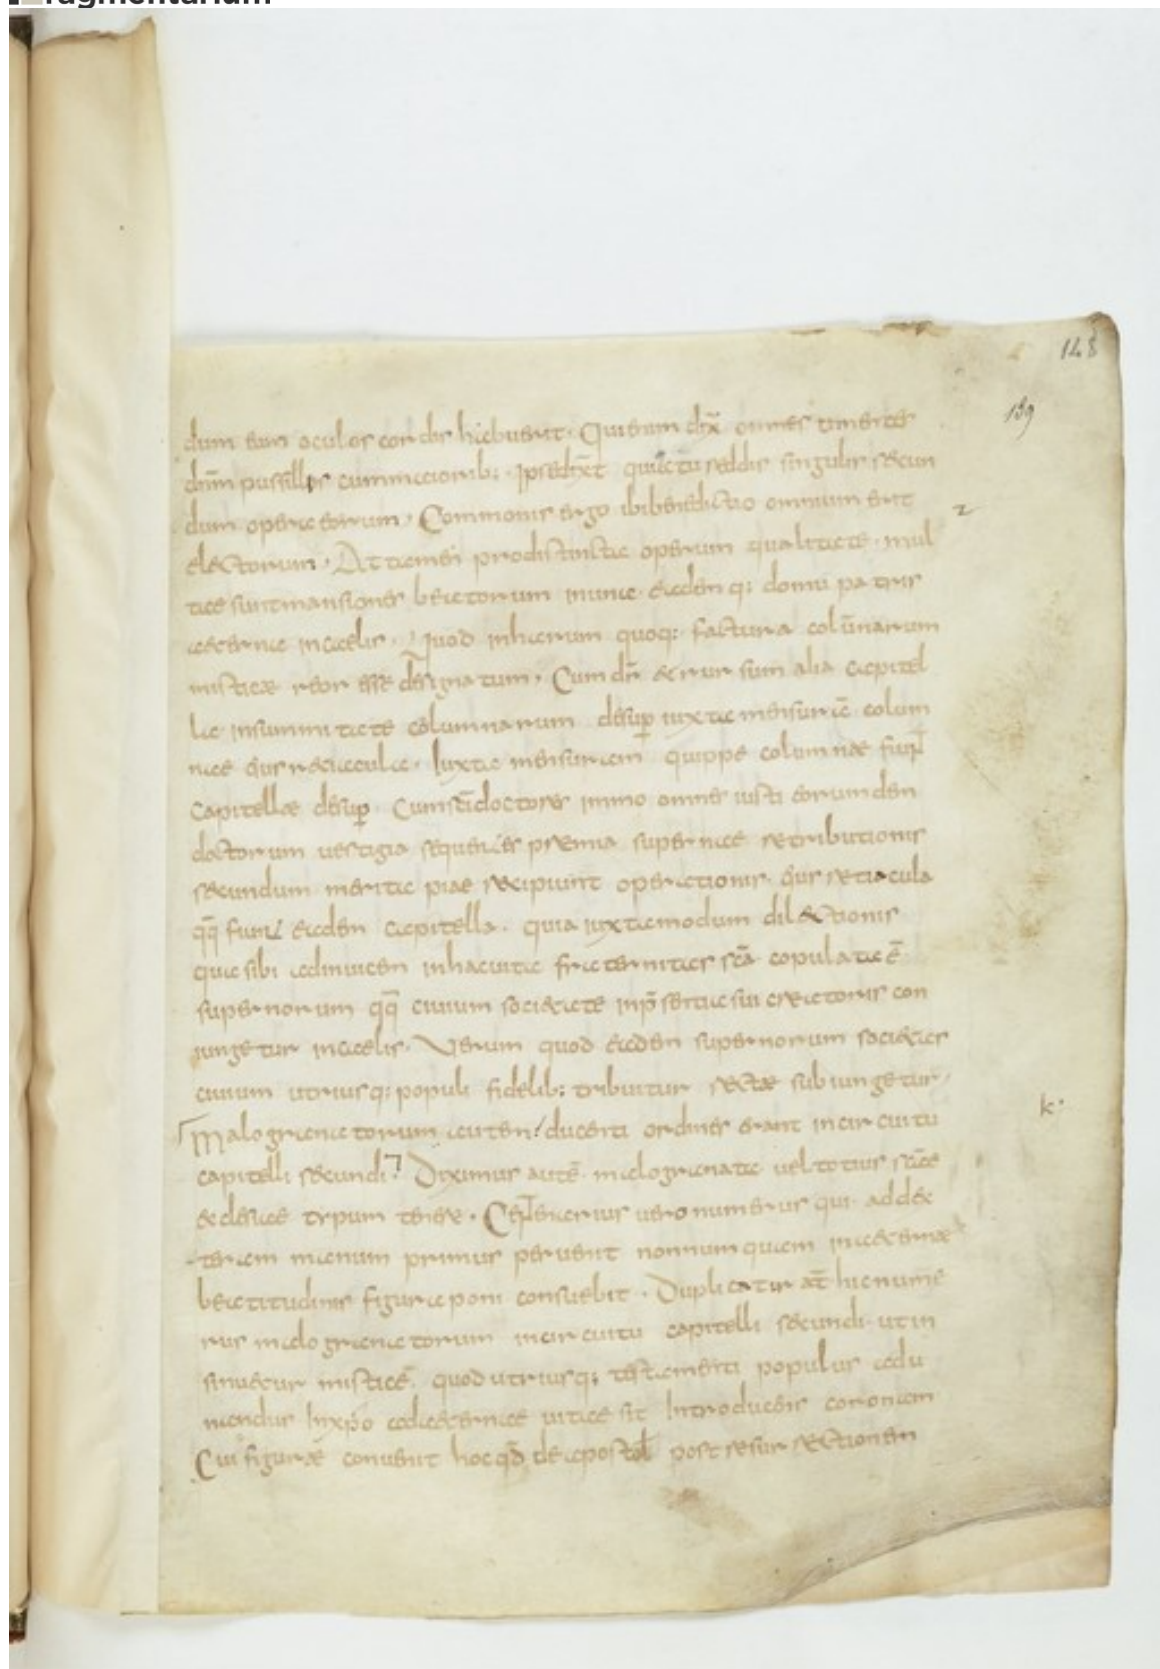 ragmentarium
148
139
dum eum oculos cordis habuerit. Qui enim dix̄ omnes timentes
dn̄m pusillos cum maioribus: Ipse dix̄et quia tū reddis singulis secun
dum opera eorum. Communis ergo ibi benedictio omnium erit
z
electorum. Attamen pro distinctia operum qualitate. mul
tae sunt mansiones beatorum in una eademq: domū patris
aeternae in caelis. Quod in harum quoq: factura colūnarum
misticae reor esse designatum. Cum dr̄ & rursum alia capitel
la in summitate columnarum desup̄ iuxta mensurā colum
nae c̄tra r&iacula. Iuxta mensuram quippe columnae fiunt
capitellae desup̄. Cum sc̄i doctores immo omnes iusti eorumdem
doctorum vestigia sequentes praemia supernae retributionis
secundum merita piae recipiunt operationis. c̄tra retiacula
qq̄ fiunt eadem capitella. quia iuxta modum dilectionis
quae sibi adinuicem in hac uita fraternitas sc̄a copulata ē
supernorum qq̄ ciuium societate in p̄sentia sui creatoris con
iungetur in caelis. Verum quod eadem supernorum soci&as
ciuium utriusq: populi fidelib: tribuitur recte subiungetur
Malogranatorum autem ducenti ordines erant in circuitu
k.
capitelli secundi. Diximus autē malogranata uel totius sc̄ae
ecclesiae typum tenere. Centenarius uero numerus qui ad dex
teram manum primus peruenit nonnumquam in aeternae
beatitudinis figura poni consueuit. Duplicatur aūt hic nume
rus malogranatorum in circuitu capitelli secundi. ut in
sinu&ur misticae. quod utriusq: testamenti populus adu
nandus in xp̄o ad aeternae uitae sit Introducens coronam
Cui figurae conuenit hoc qd̄ de apostol̄ post resurrectionem